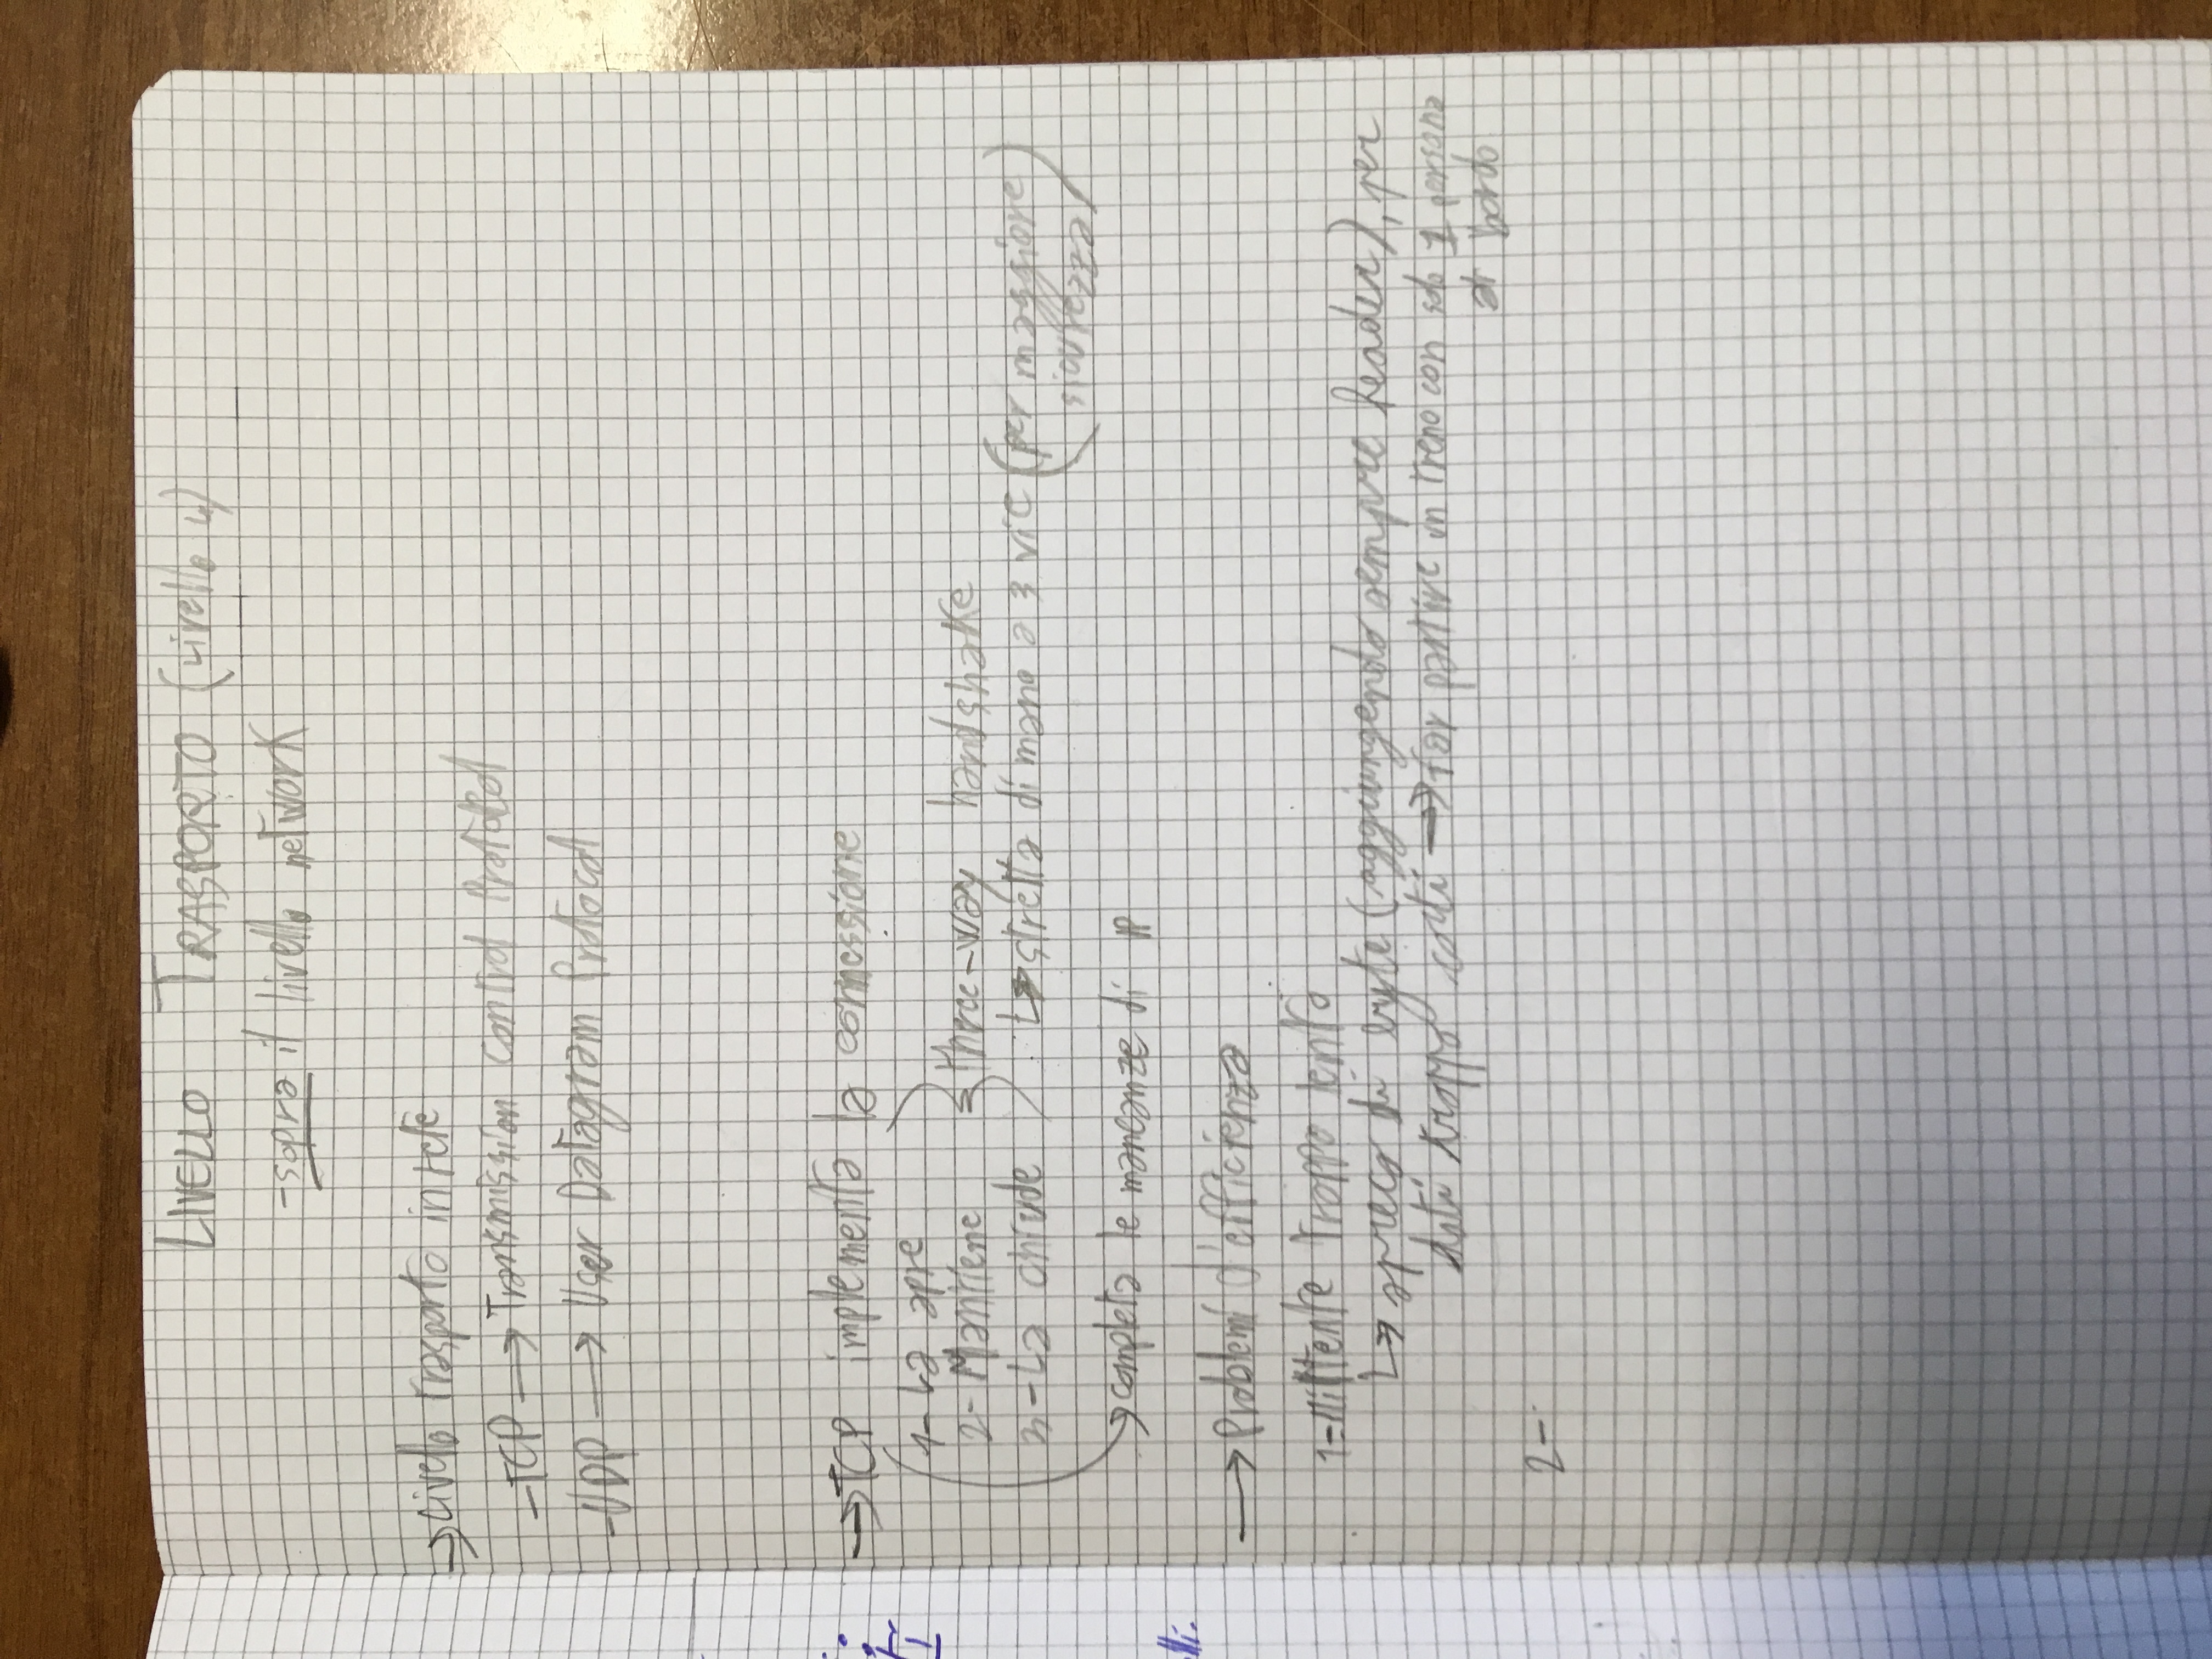 LIVELLO TRASPORTO (Livello 4)
-sopra il livello network
→Livello Trasporto in rete
-TCP → Transmission Control Protocol
-UDP → User Datagram Protocol
→TCP implementa la connessione
1- La apre
2- Mantiene
3- La chiude
three-way handshake
↳ stretta di mano a 3 vie (per maggiore
sicurezza)
→completa le mancanze di IP
→ Problemi d'efficienza
1-Mittente troppo lento
↳ spreco di byte (aggiungendo sempre header), per
dati troppo corti → far partire un treno con solo 1 persona
a bordo
2-